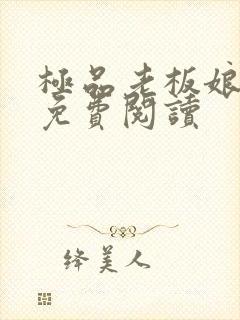 極品老板娘
免費閱讀
绛美人